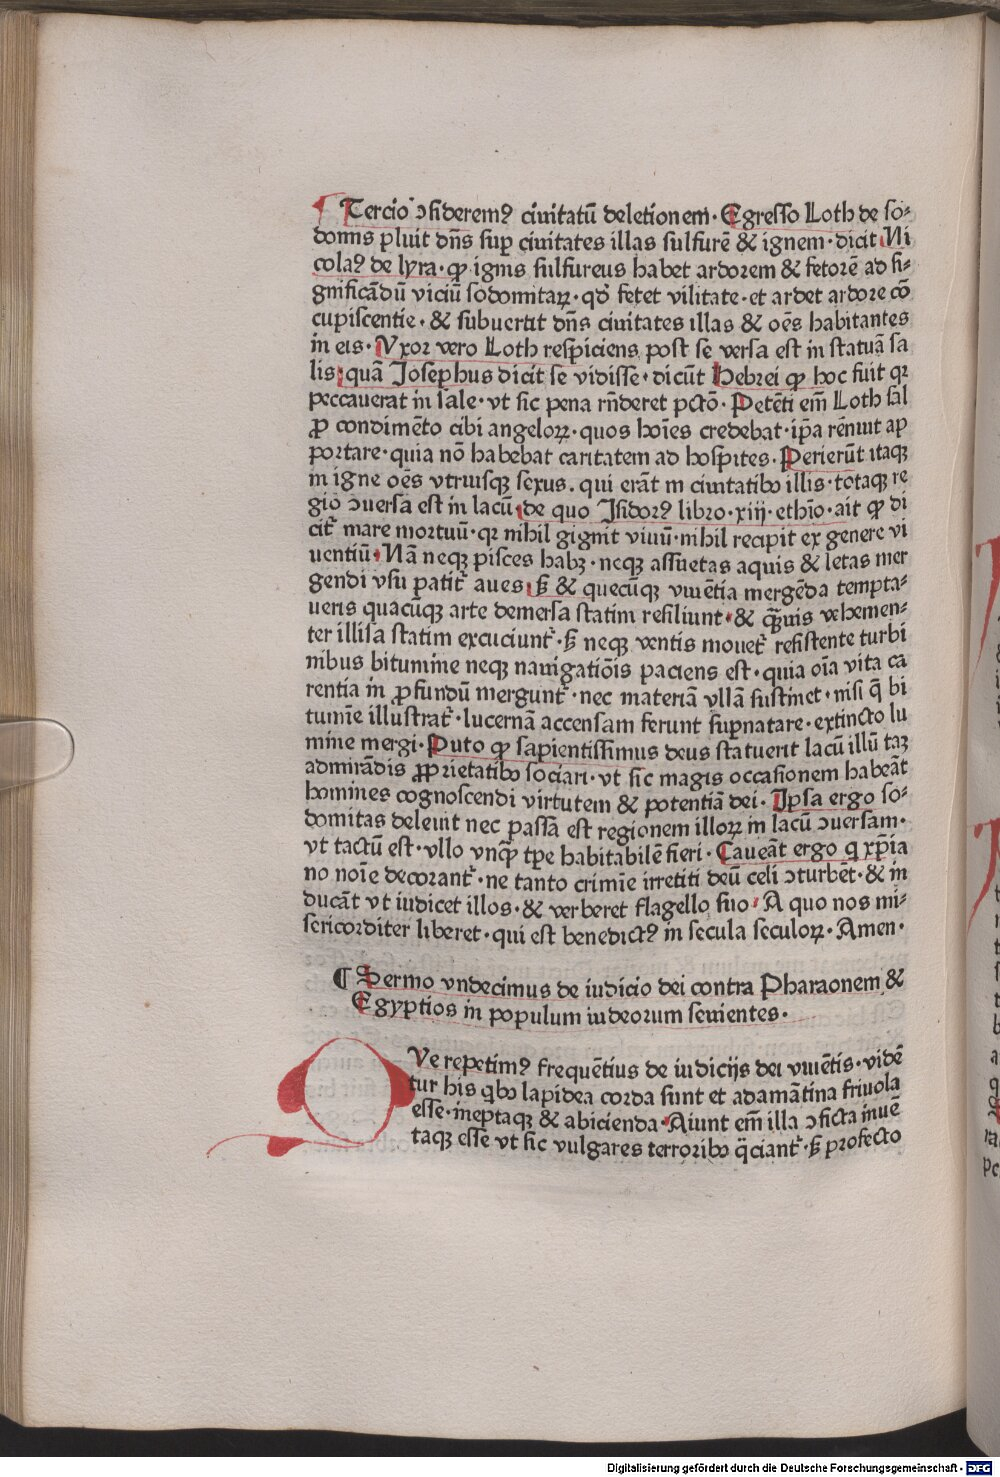 Tercio ↄſideremꝰ ciuitatū deletionem· Egreſſo Loth de ſo⸗
domis pluit dn̄s ſuꝑ ciuitates illas ſulfurē & ignem· dicit Ni
colaꝰ de lyra· ꝙ ignis ſulfureus habet ardorem & fetorē ad ſi⸗
gnificādū viciū ſodomitaꝝ· qď fetet vilitate· et ardet ardore cō
cupiſcentie· & ſubuertit dn̄s ciuitates illas & oēs habitantes
in eis· Vxor vero Loth reſpiciens poſt ſe verſa eſt in ſtatuā ſa
lis· quā Joſephus dicit ſe vidiſſe· dicūt Hebrei ꝙ hoc fuit qr
peccauerat in ſale· vt ſic pena rn̄deret pctō· Petēti em̄ Loth ſal
ꝓ condimēto cibi angeloꝝ· quos hoīes credebat· ip̄a rēnuit ap
portare· quia nō habebat caritatem ad hoſpites· Perierūt itaqꝫ
in igne oēs vtriuſqꝫ ſexus. qui erāt in ciuitatibꝰ illis· totaqꝫ re
gio ↄuerſa eſt in lacū· de quo Jſidorꝰ libro· xiij· ethīo· ait ꝙ di
cit̄ mare mortuū· qr nihil gignit viuū· nihil recipit ex genere vi
uentiū· Nā neqꝫ piſces habꝫ· neqꝫ aſſuetas aquis & letas mer
gendi vſu patit̄ aues· ſꝫ & quecūqꝫ viuētia mergēda tempta⸗
ueris quacūqꝫ arte demerſa ſtatim reſiliunt· & q̄uis vehemen⸗
ter illiſa ſtatim excuciunt̄· ſꝫ neqꝫ ventis mouet̄ reſiſtente turbi
nibus bitumine neqꝫ nauigatiōis paciens eſt· quia oīa vita ca
rentia in ꝓfundū mergunt̄· nec materiā vllā ſuſtinet· niſi q̄ bi
tumīe illuſtrat̄· lucernā accenſam ferunt ſuꝑnatare· extincto lu
mine mergi· Puto ꝙ ſapientiſſimus deus ſtatuerit lacū illū taꝫ
admirādis ꝓprietatibꝰ ſociari· vt ſic magis occaſionem habeāt
homines cognoſcendi virtutem & potentiā dei· Jpſa ergo ſo⸗
domitas deleuit nec paſſa eſt regionem illoꝝ in lacū ↄuerſam·
vt tactū eſt· vllo vnq̄ tꝑe habitabilē fieri· Caueāt ergo q xp̄ia
no noīe decorant̄· ne tanto crimīe irretiti deū celi ↄturbēt· & in
ducāt vt iudicet illos· & verberet flagello ſuo· A quo nos mi⸗
ſericorditer liberet· qui eſt benedictꝰ in ſecula ſeculoꝝ· Amen·
¶ Sermo vndecimus de iudicio dei contra Pharaonem &
Egyptios in populum iudeorum ſeuientes·
QVe repetimꝰ frequētius de iudicijs dei viuētis· vidē
tur his qbꝰ lapidea corda ſunt et adamātina friuola
eſſe· ineptaqꝫ & abicienda· Aiunt em̄ illa ↄficta inuē
taqꝫ eſſe vt ſic vulgares terroribꝰ q̈ciant̄· ſꝫ profecto
Digitalisierung gefördert durch die Deutsche Forschungsgemeinschaft - DFG